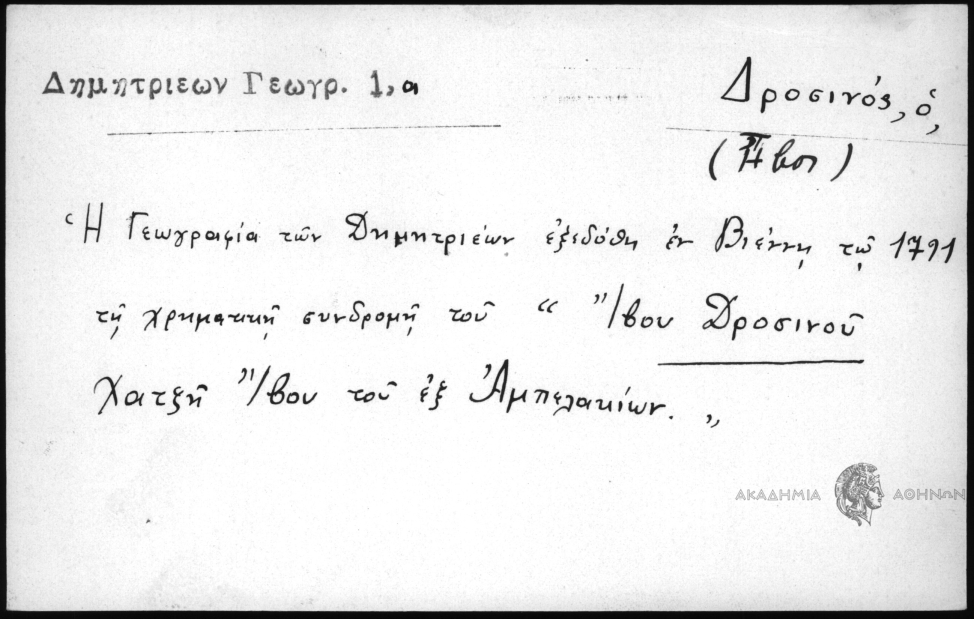 Δημητριεων Γεωγρ. 1,α
Δροσινός, ὁ,
(Ἤβος)
Ἡ Γεωγραφία τῶν Δημητριέων ἐξεδόθη ἐν Βιέννῃ τῷ 1791
τῇ χρηματικῇ συνδρομῇ τοῦ “ Ἴβου Δροσινοῦ
Χατζῆ Ἴβου τοῦ ἐξ Ἀμπελακίων. „
ΑΚΑΔΗΜΙΑ ΑΘΗΝΩΝ